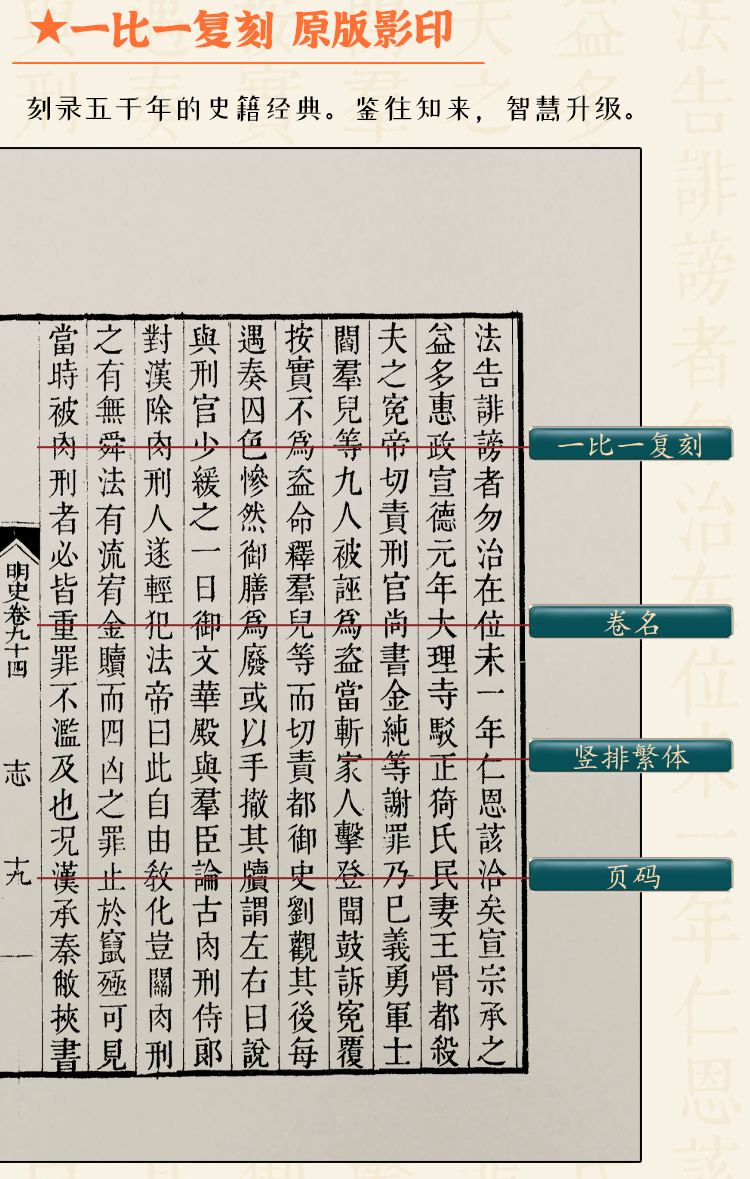 ★一比一复刻 原版影印
刻录五千年的史籍经典。鉴往知来，智慧升级。
法告誹謗者勿治在位未一年仁恩該洽矣宣宗承之
益多惠政宣德元年大理寺駁正猗氏民妻王骨都殺
夫之冤帝切責刑官尚書金純等謝罪乃已義勇軍士
閻羣兒等九人被誣爲盜當斬家人擊登聞鼓訴冤覆
按實不爲盜命釋羣兒等而切責都御史劉觀其後每
遇奏囚色慘然御膳爲廢或以手撤其牘謂左右曰說
與刑官少緩之一日御文華殿與羣臣論古肉刑侍郎
對漢除肉刑人遂輕犯法帝曰此自由敎化豈關肉刑
之有無舜法有流宥金贖而四凶之罪止於竄殛可見
當時被肉刑者必皆重罪不濫及也況漢承秦敝挾書
明史卷九十四
志
十九
一比一复刻
卷名
竖排繁体
页码